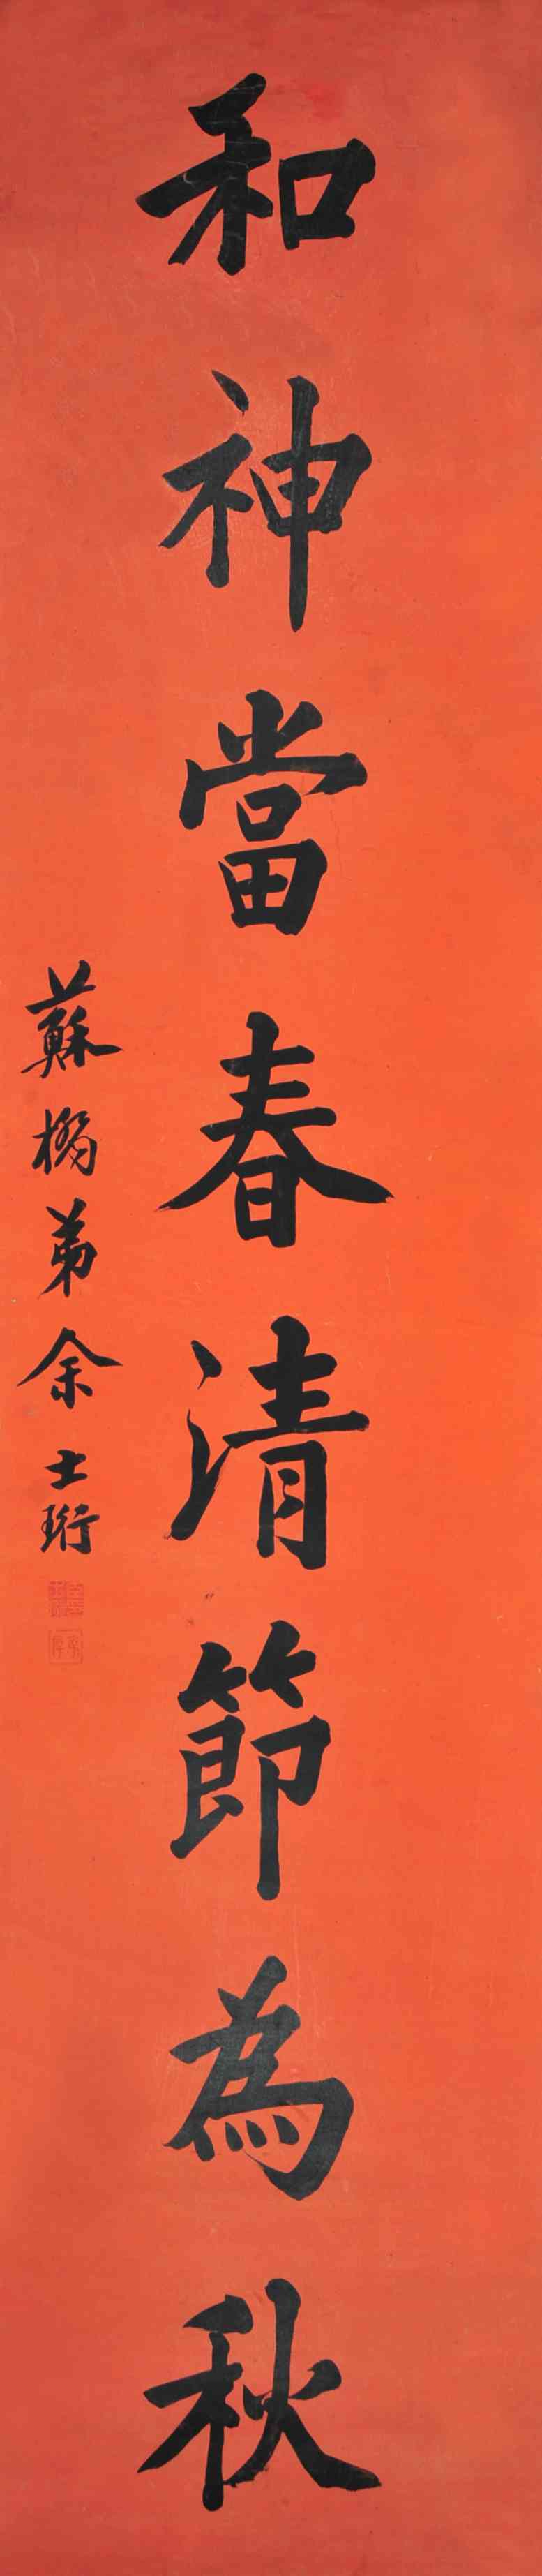 和神當春清節為秋
蘇橋弟余士珩